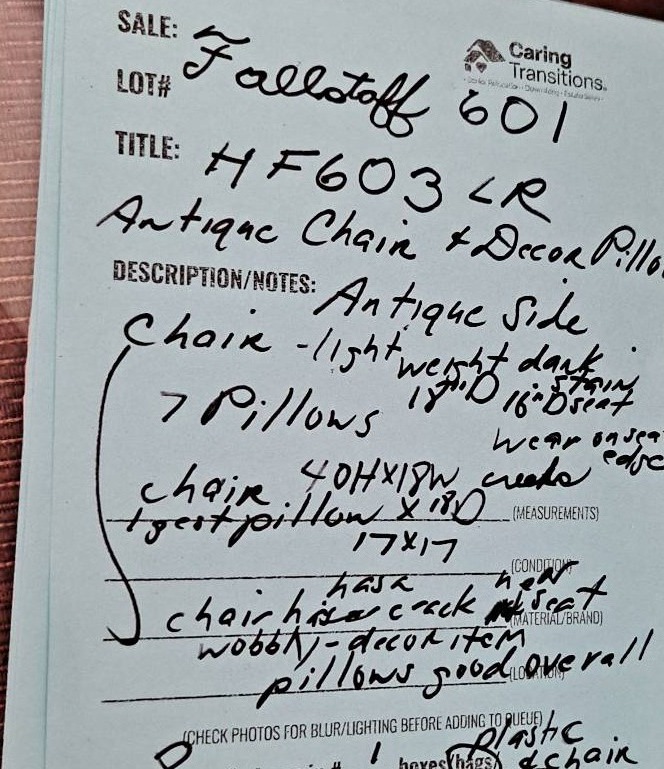 SALE: Fallstaff 601
Caring
Transitions.
LOT#
TITLE: HF603 LR
Antique Chair & Decor Pillo
DESCRIPTION/NOTES: Antique Side
Chair - light weight dark
stain
7 Pillows 18"D 16"D seat
wear on sea
edge
chair 40HX18W
lgest pillow X 18D (MEASUREMENTS)
17X17
(CONDITION)
has a
chair crack seat
(MATERIAL/BRAND)
wobbly - decor item
pillows good overall
(CHECK PHOTOS FOR BLUR/LIGHTING BEFORE ADDING TO QUEUE)
plastic
1 boxes (bags) & chair